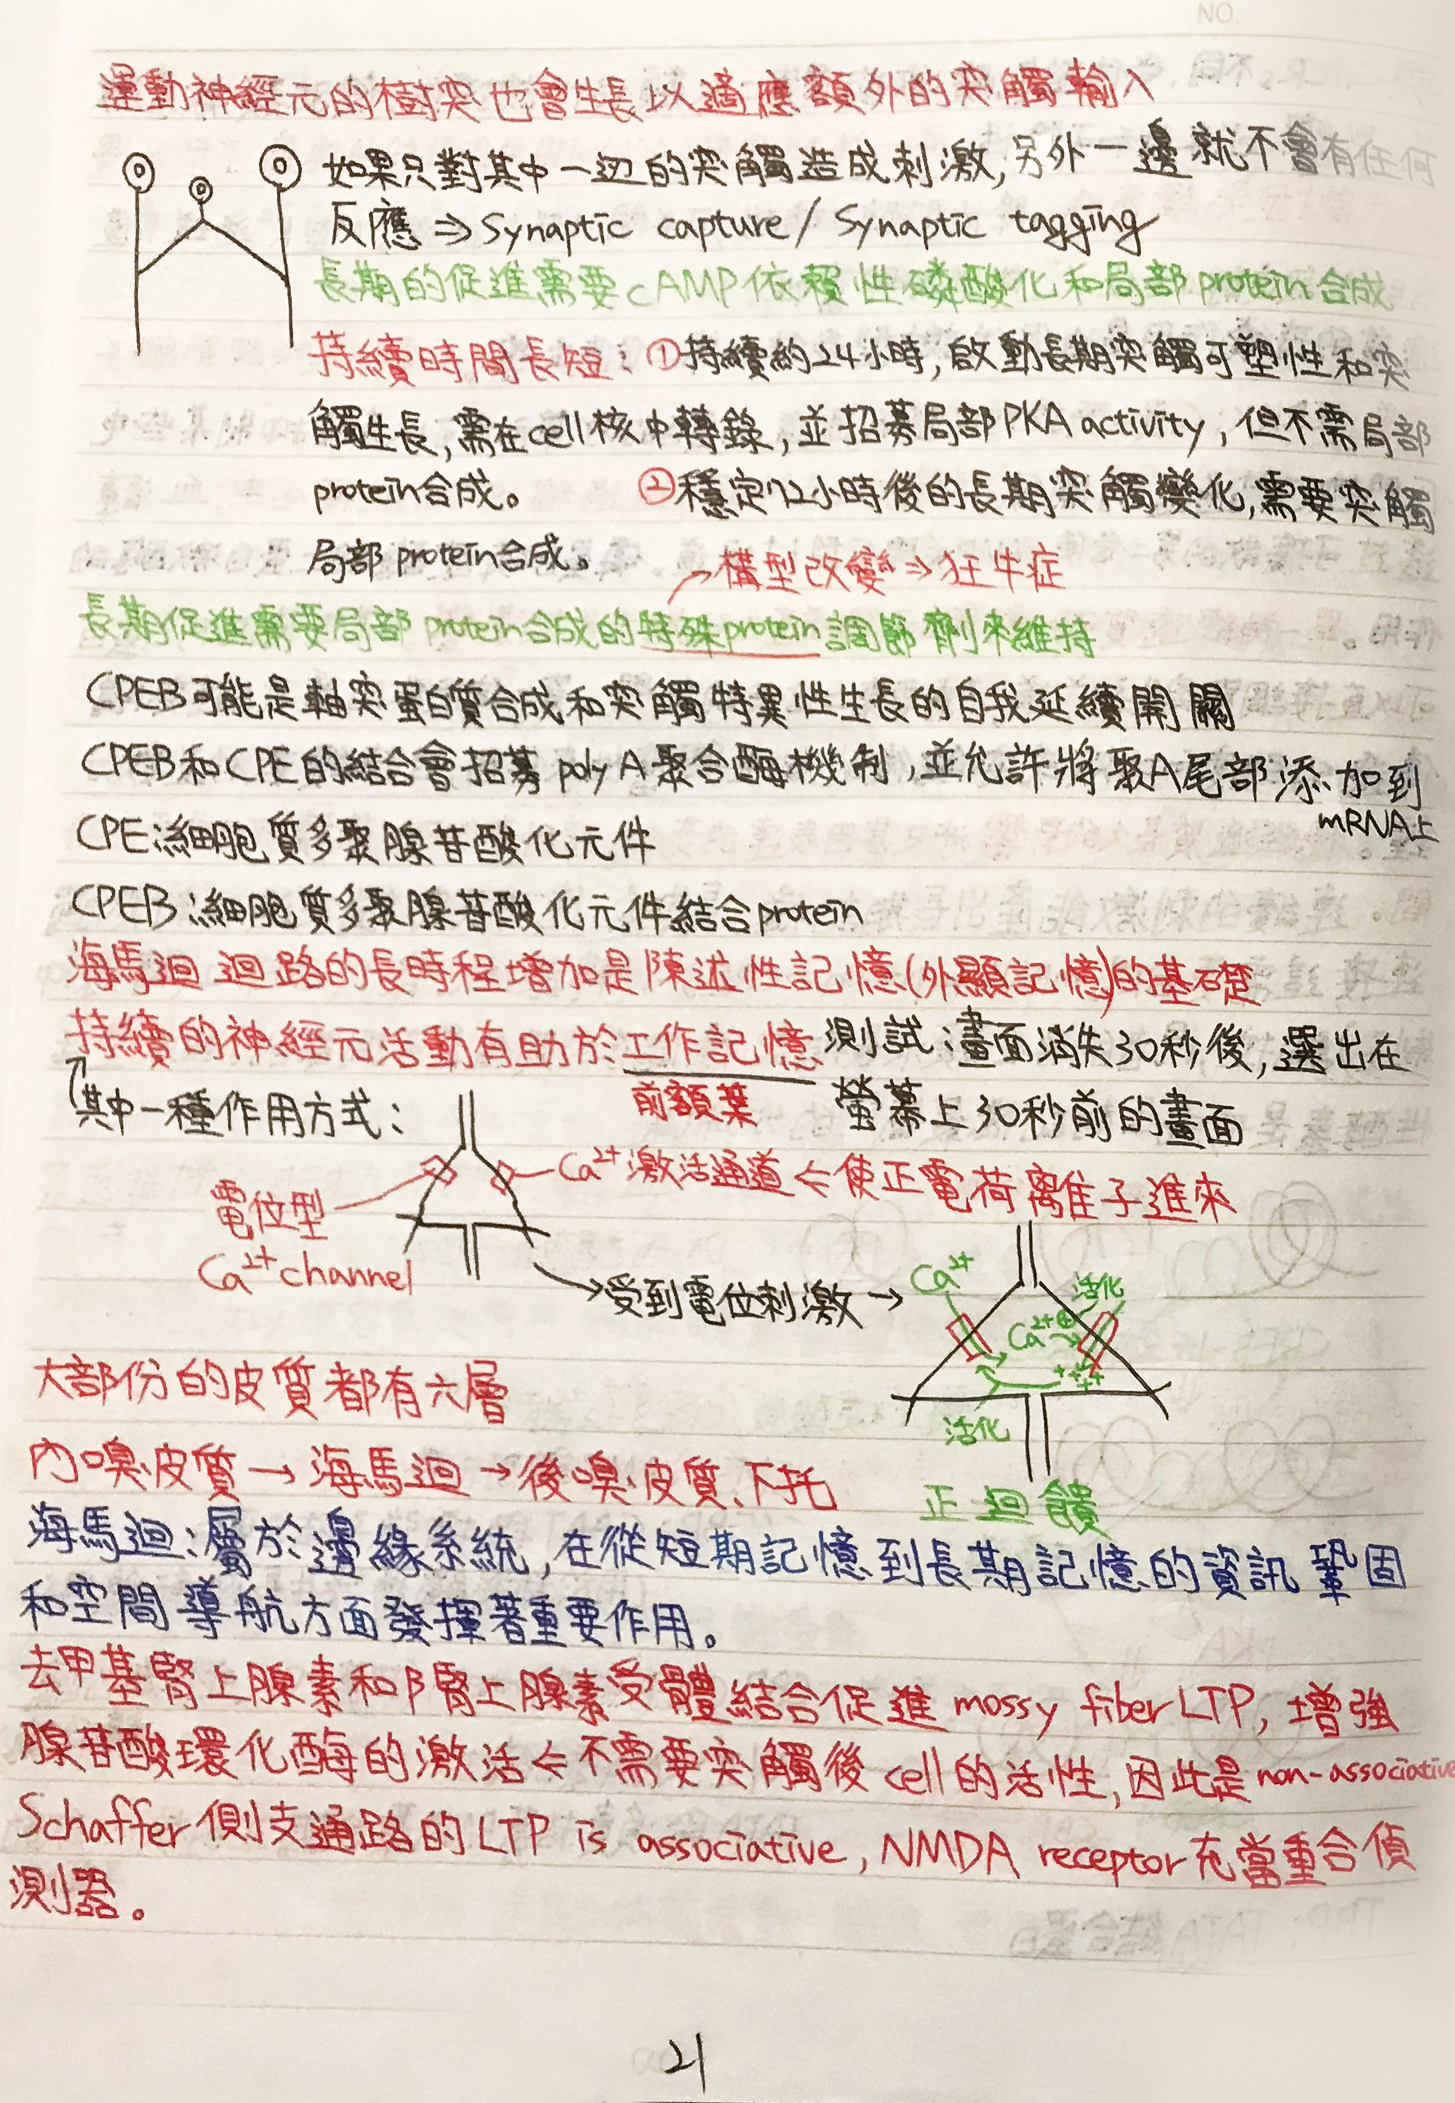 NO.
運動神經元的樹突也會生長以適應額外的突觸輸入
如果只對其中一边的突觸造成刺激,另外一邊就不會有任何
反應 ⇒ Synaptic capture / Synaptic tagging
長期的促進需要cAMP依賴性磷酸化和局部protein合成
持續時間長短:①持續約24小時,啟動長期突觸可塑性和突
觸生長,需在cell核中轉錄,並招募局部PKA activity,但不需局部
protein合成。 ②穩定72小時後的長期突觸變化,需要突觸
局部protein合成。
構型改變⇒狂牛症
長期促進需要局部protein合成的特殊protein調節劑來維持
CPEB可能是軸突蛋白質合成和突觸特異性生長的自我延續開關
CPEB和CPE的結合會招募poly A聚合酶機制,並允許將聚A尾部添加到
mRNA上
CPE:細胞質多聚腺苷酸化元件
CPEB:細胞質多聚腺苷酸化元件結合protein
海馬迴迴路的長時程增加是陳述性記憶(外顯記憶)的基礎
持續的神經元活動有助於工作記憶 測試:畫面消失30秒後,選出在
前額葉 螢幕上30秒前的畫面
其中一種作用方式:
Ca²⁺激活通道 ⇐ 使正電荷離子進來
電位型
Ca²⁺ channel
→受到電位刺激→
Ca²⁺
活化
Ca²⁺ ⊕
++++
活化
正迴饋
大部份的皮質都有六層
內嗅皮質→海馬迴→後嗅皮質、下托
海馬迴:屬於邊緣系統,在從短期記憶到長期記憶的資訊鞏固
和空間導航方面發揮著重要作用。
去甲基腎上腺素和β腎上腺素受體結合促進mossy fiber LTP,增強
腺苷酸環化酶的激活 ⇐ 不需要突觸後cell的活性,因此是non-associative
Schaffer側支通路的LTP is associative, NMDA receptor充當重合偵
測器。
21